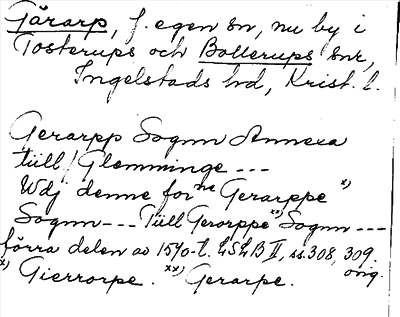 Gärarp, f. egen sn, nu by i
Tosterups och Bollerups snr,
Ingelstads hd, Krist. l.
Gerarpp Sognn Annexa
tiill/Glemminge ---
Udj denne for ne Gerarppe x)
Sognn --- Tiill Gerorppe xx) Sognn ---
förra delen av 1570-t. LSLB II, ss. 308, 309.
orig.
x) Gierrorpe. xx) Gerarpe.